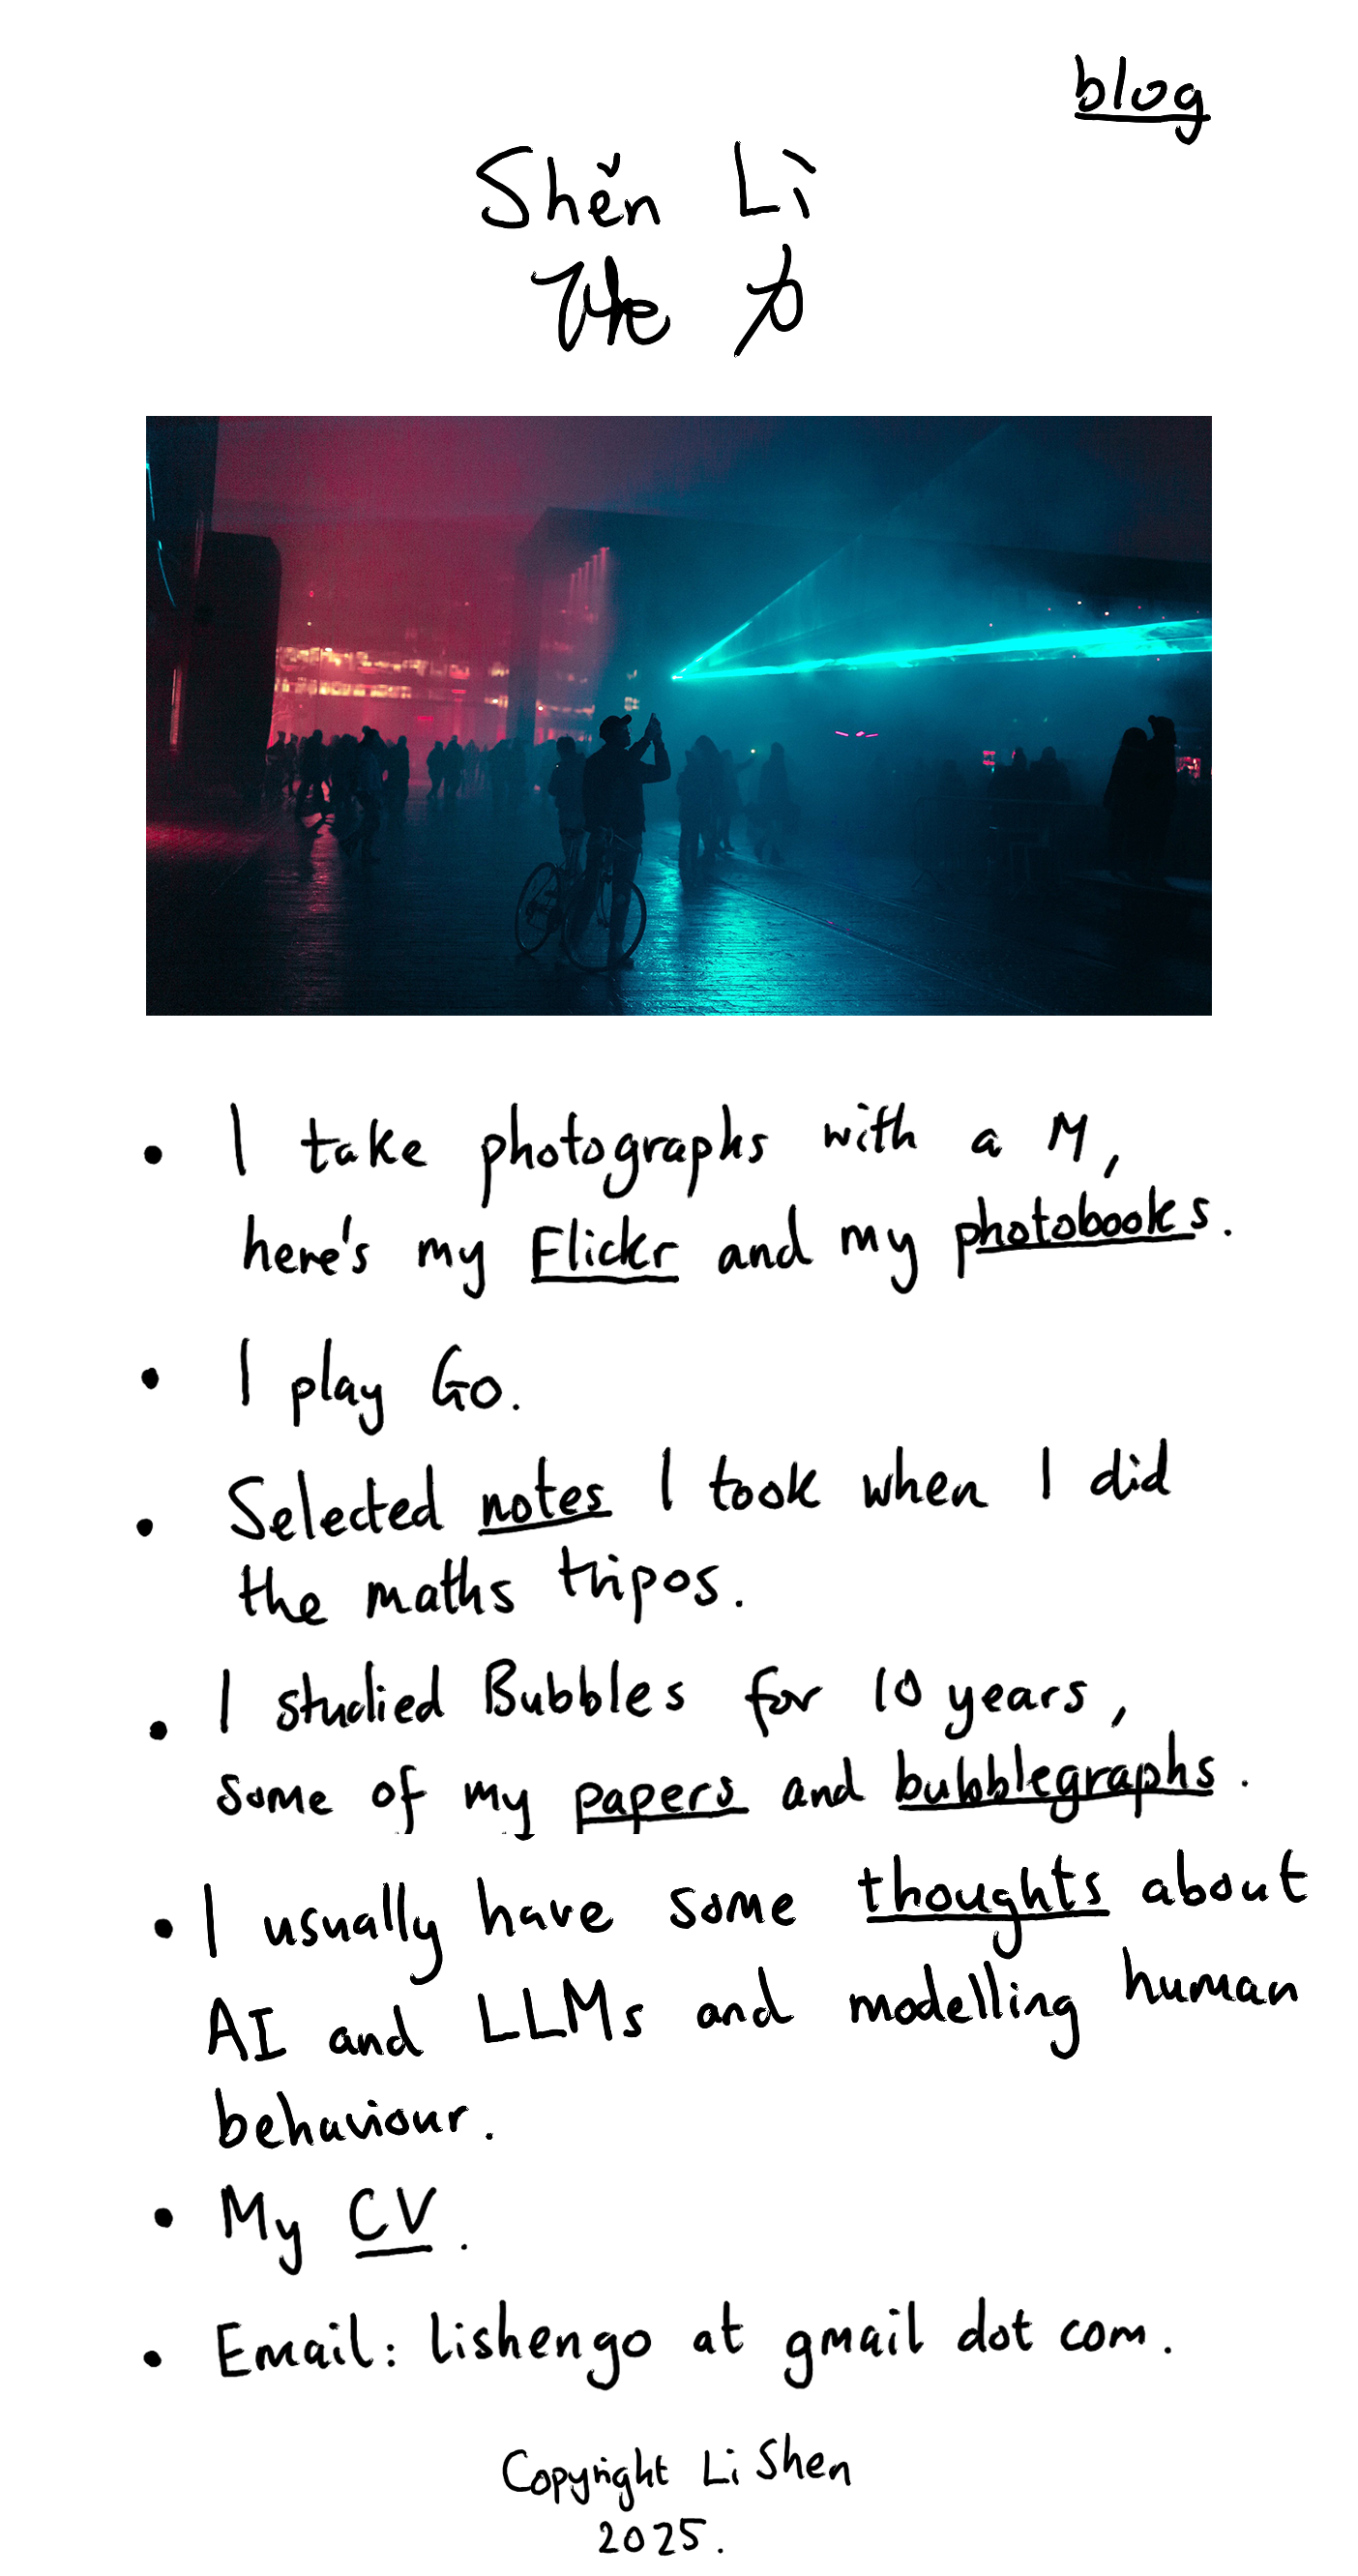 blog
Shěn Lì
沈 力
I take photographs with a M,
here's my Flickr and my photobooks.
I play Go.
Selected notes I took when I did
the maths tripos.
I studied Bubbles for 10 years,
some of my papers and bubblegraphs.
I usually have some thoughts about
AI and LLMs and modelling human
behaviour.
My CV.
Email: lishengo at gmail dot com.
Copyright Li Shen
2025.